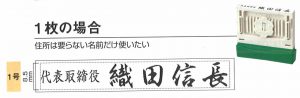 1枚の場合
住所は要らない名前だけ使いたい
1号
8.5mm
代表取締役 織田信長